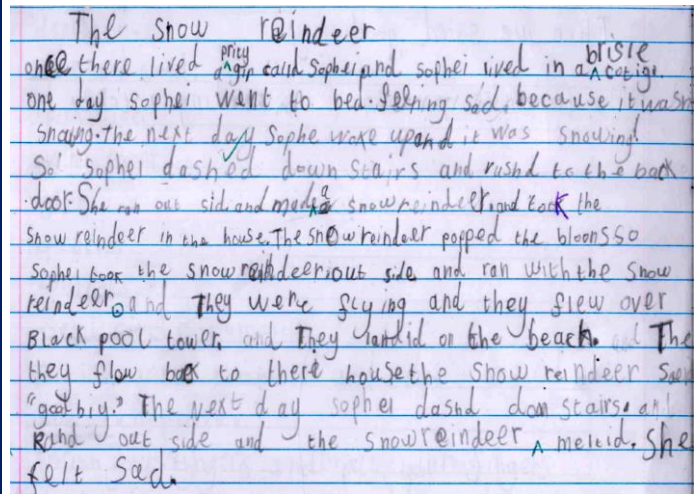 The snow reindeer
prity brisle
once there lived a girl calld Sophei and sophei lived in a cotige.
one day sophei went to bed feling sad, because it wasn
Snowing. the next day Sophe woke up and it was snowing!
So Sophei dashed down stairs and rushd to the back
door. She ran out sid. and made a snowreindeer. and took the
Snow reindeer in the house. The snowreindeer popped the bloons so
Sophei took the snowreindeer out side and ran with the Snow
reindeer. and They were flying and they flew over
Black pool tower. and They landid on the beach. The
they flow back to there house the Snow reindeer Saed
"goodbiy." The next day sophei dashd don stairs. an
Rand out side and the snowreindeer meltid. She
felt Sad.